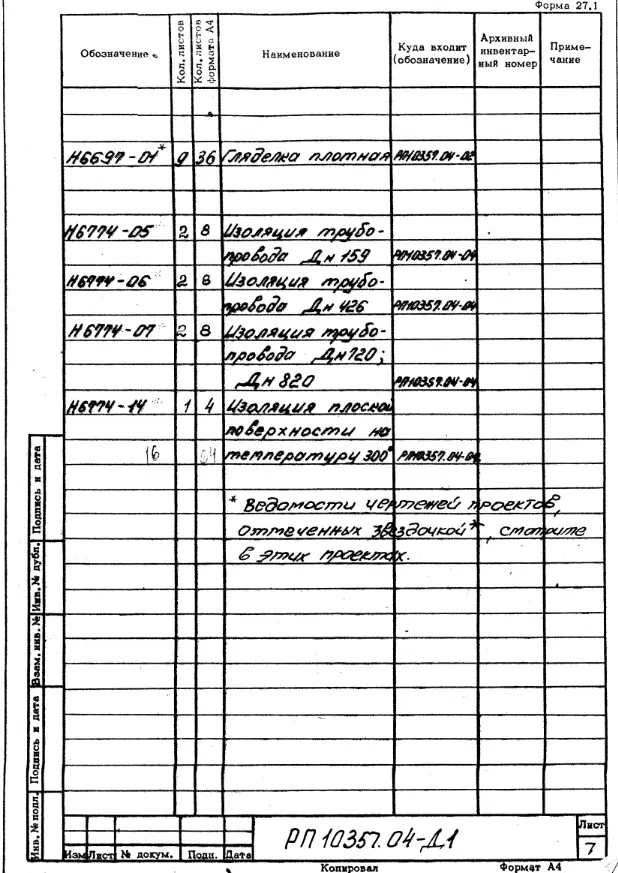 Форма 27.1
Обозначение
Кол. листов
Кол. листов формата А4
Наименование
Куда входит (обозначение)
Архивный инвентарный номер
Примечание
Н6697-01* 9 36 Гляделка плотная РП10357.04-02
Н6774-05 2 8 Изоляция трубо-
провода Дн 159 РП10357.04-04
Н6774-06 2 8 Изоляция трубо-
провода Дн 426 РП10357.04-04
Н6774-07 2 8 Изоляция трубо-
провода Дн 720;
Дн 820 РП10357.04-04
Н6774-14 1 4 Изоляция плоской
поверхности на
16 64 температуру 300° РП10357.04-04
* Ведомости чертежей проектов,
отмеченных звездочкой*, смотрите
в этих проектах.
Подпись и дата
Инв. № дубл.
Взам. инв. №
Подпись и дата
Инв. № подл.
Изм Лист № докум. Подп. Дата
РП 10357.04-Д1
Лист
7
Копировал Формат А4